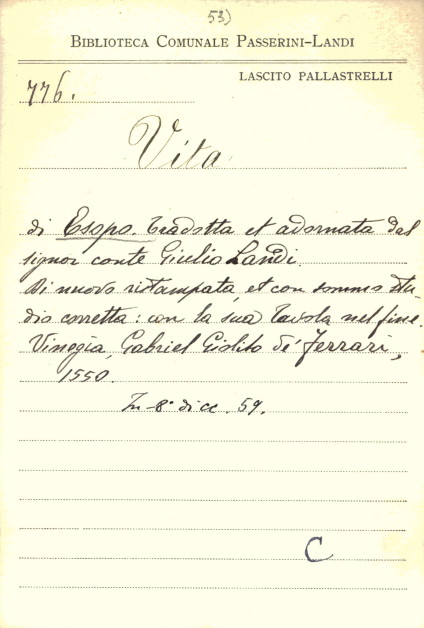 53)
BIBLIOTECA COMUNALE PASSERINI-LANDI
LASCITO PALLASTRELLI
776.
Vita
di Esopo. Tradotta et adornata dal
signor conte Giulio Landi.
Di nuovo ristampata, et con somma stu-
dio corretta: con la sua Tavola nel fine.
Vinegia, Gabriel Giolito de' Ferrari,
1550.
In-8° di cc. 59.
C